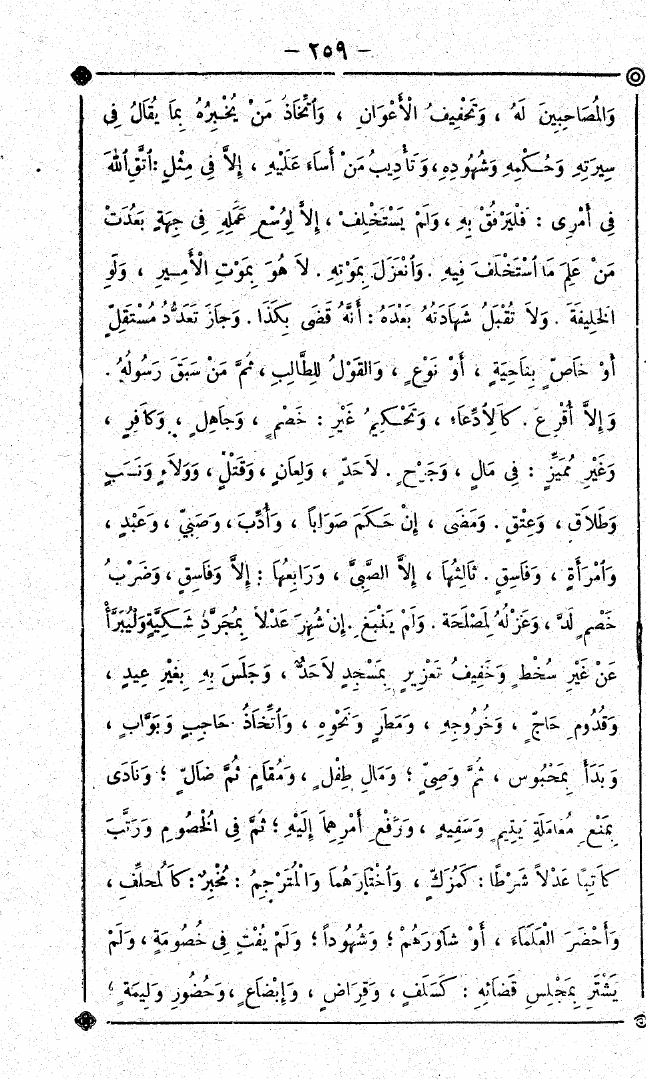 - ٢٥٩ -
وَالْمُصَاحِبِينَ لَهُ ، وَتَخْفِيفُ الْأَعْوَانِ ، وَٱتِّخَاذُ مَنْ يُخْبِرُهُ بِمَا يُقَالُ فِى
سِيرَتِهِ وَحُكْمِهِ وَشُهُودِهِ، وَتَأْدِيبُ مَنْ أَسَاءَ عَلَيْهِ ، إِلَّا فِى مِثْلِ : ٱتَّقِ ٱللهَ
فِى أَمْرِى : فَلْيَرْفُقْ بِهِ ، وَلَمْ يَسْتَخْلِفْ ، إِلَّا لِوُسْعِ عَمَلِهِ فِى جِهَةٍ بَعُدَتْ
مَنْ عَلِمَ مَا ٱسْتَخْلَفَ فِيهِ . وَٱنْعَزَلَ بِمَوْتِهِ . لَا هُوَ بِمَوْتِ الْأَمِيرِ ، وَلَوِ
الْخَلِيفَةَ . وَلَا تُقْبَلُ شَهَادَتُهُ بَعْدَهُ : أَنَّهُ قَضَى بِكَذَا . وَجَازَ تَعَدُّدُ مُسْتَقِلٍّ
أَوْ خَاصٍّ بِنَاحِيَةٍ ، أَوْ نَوْعٍ ، وَالْقَوْلُ لِلطَّالِبِ ، ثُمَّ مَنْ سَبَقَ رَسُولُهُ .
وَإِلَّا أُقْرِعَ . كَالِادِّعَاءِ ، وَتَحْكِيمُ غَيْرِ : خَصْمٍ ، وَجَاهِلٍ ، وَكَافِرٍ ،
وَغَيْرِ مُمَيِّزٍ : فِى مَالٍ ، وَجَرْحٍ . لَاحَدٍّ ، وَلِعَانٍ ، وَقَتْلٍ ، وَوَلَاءٍ وَنَسَبٍ
وَطَلَاقٍ ، وَعِتْقٍ . وَمَضَى ، إِنْ حَكَمَ صَوَاباً ، وَأُدِّبَ ، وَصَبِيٍّ ، وَعَبْدٍ ،
وَٱمْرَأَةٍ ، وَفَاسِقٍ . ثَالِثُهَا ، إِلَّا الصَّبِىَّ ، وَرَابِعُهَا : إِلَّا وَفَاسِقٍ ، وَضَرْبُ
خَصْمٍ لَدَّ ، وَعَزْلُهُ لِمَصْلَحَةٍ . وَلَمْ يَنْبَغِ . إِنْ شُهِرَ عَدْلاً بِمُجَرَّدِ شَكِيَّةٍ وَلْيُبَرَّأْ
عَنْ غَيْرِ سُخْطٍ وَخَفِيفُ تَعْزِيرٍ بِمَسْجِدٍ لَاحَدٌّ ، وَجَلَسَ بِهِ بِغَيْرِ عِيدٍ ،
وَقُدُومِ حَاجٍّ ، وَخُرُوجِهِ ، وَمَطَرٍ وَنَحْوِهِ ، وَٱتِّخَاذُ حَاجِبٍ وَبَوَّابٍ ،
وَبَدَأَ بِمَحْبُوسٍ ، ثُمَّ وَصِىٍّ ؛ وَمَالِ طِفْلٍ ، وَمُقَامٍ ثُمَّ ضَالٍّ ؛ وَنَادَى
بِمَنْعِ مُعَامَلَةِ يَتِيمٍ وَسَفِيهٍ ، وَرَفْعِ أَمْرِهِمَا إِلَيْهِ ؛ ثُمَّ فِى الْخُصُومِ وَرَتَّبَ
كَاتِبًا عَدْلاً شَرْطًا : كَمُزَكٍّ ، وَٱخْتَارَهُمَا وَالْمُتَرْجِمُ : مُخْبِرٌ : كَالْمُحَلِّفِ ،
وَأَحْضَرَ الْعُلَمَاءَ ، أَوْ شَاوَرَهُمْ ؛ وَشُهُوداً ؛ وَلَمْ يُفْتِ فِى خُصُومَةٍ ، وَلَمْ
يَشْتَرِ بِمَجْلِسِ قَضَائِهِ : كَسَلَفٍ ، وَقِرَاضٍ ، وَإِبْضَاعٍ ، وَحُضُورِ وَلِيمَةٍ ؛